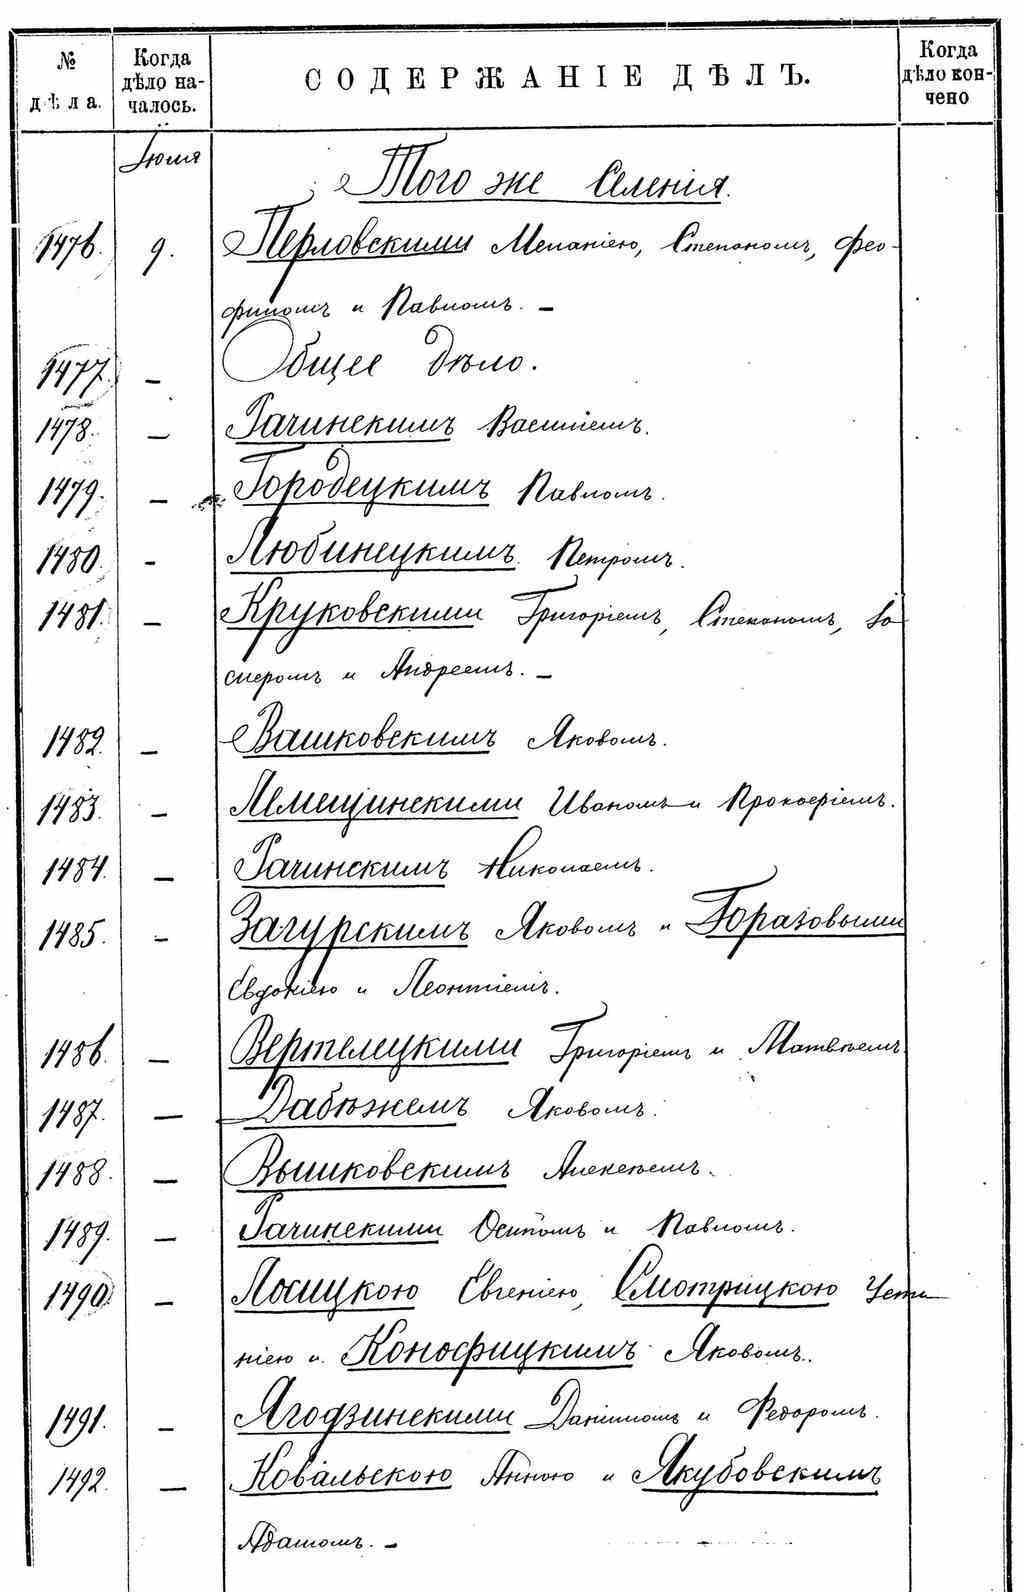 № дѣла.
Когда дѣло на-
чалось.
СОДЕРЖАНІЕ ДѢЛЪ.
Когда дѣло кон-
чено
Іюля
Того же Селенія.
1476. 9. Перловскими Меланіею, Степаномъ, Фео-
филомъ и Павломъ. –
1477. – Общее дѣло.
1478. – Рачинскимъ Василіемъ.
1479. – Городецкимъ Павломъ.
1480. – Любинецкимъ Петромъ.
1481. – Круковскими Григоріемъ, Степаномъ, Іо
сифомъ и Андреемъ. –
1482. – Вашковскимъ Яковомъ.
1483. – Лемещинскими Иваномъ и Прокофіемъ.
1484. – Рачинскимъ Николаемъ.
1485. – Загурскимъ Яковомъ и Горазовыми
Евдокіею и Леонтіемъ.
1486. – Вертелецкими Григоріемъ и Матвѣемъ
1487. – Дабѣжемъ Яковомъ.
1488. – Вышковскимъ Алексѣемъ.
1489. – Рачинскими Осипомъ и Павломъ.
1490. – Лосицкою Евгеніею, Смотрицкою Усти
ніею и Конофицкимъ Яковомъ.
1491. – Ягодзинскими Даніиломъ и Федоромъ.
1492. – Ковальскою Анною и Якубовскимъ
Адамомъ. –